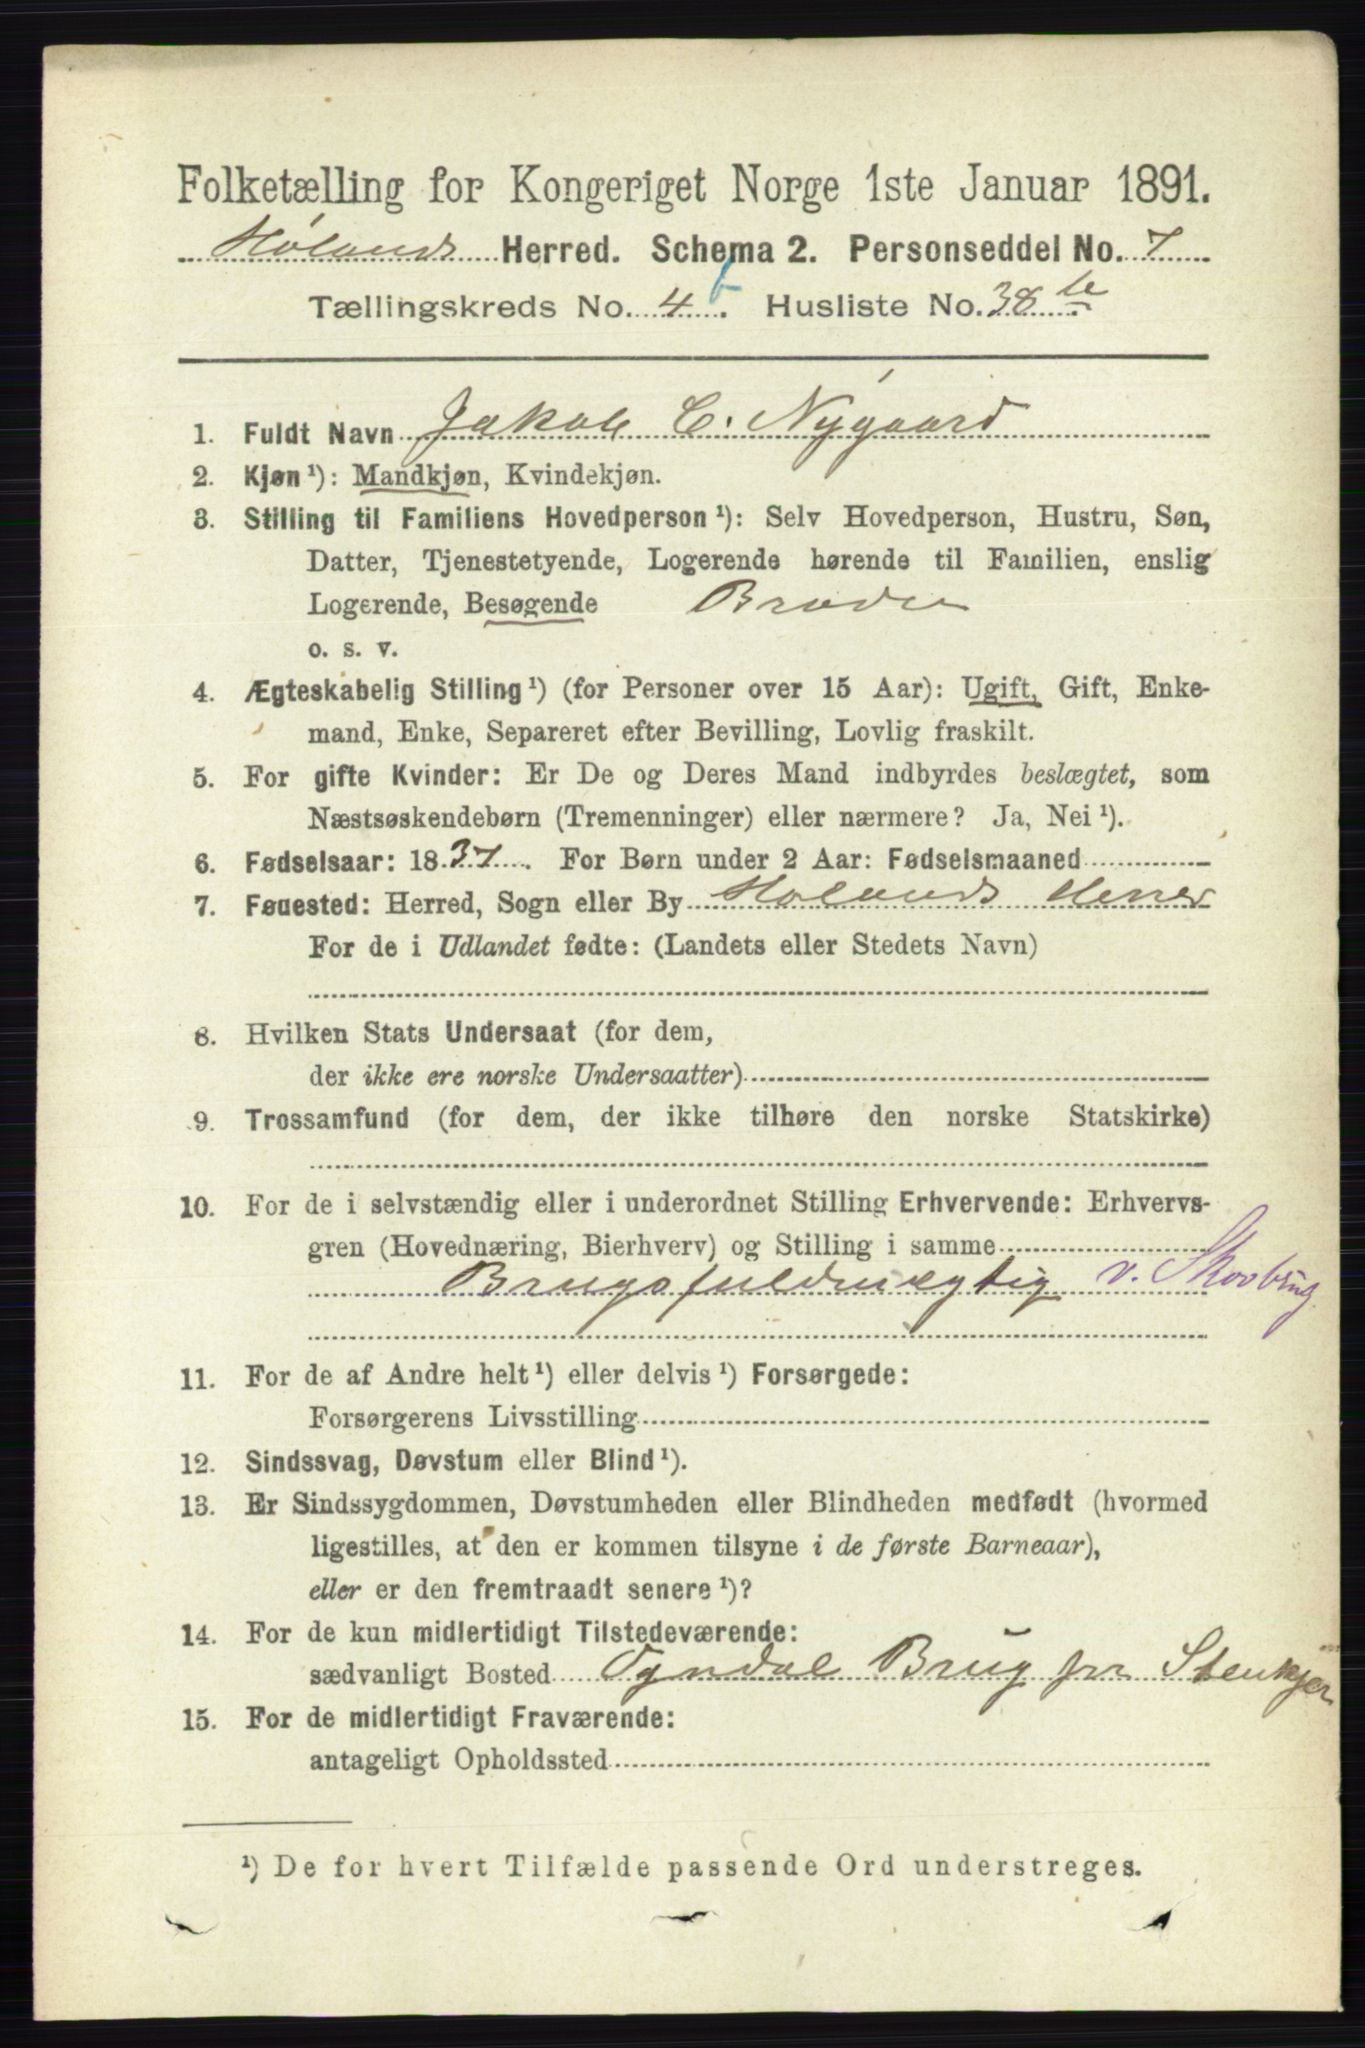 Folketælling for Kongeriget Norge 1ste Januar 1891.
Hølands Herred. Schema 2. Personseddel No. 7
Tællingskreds No. 4 b. Husliste No. 38 b
1. Fuldt Navn Jakob C. Nygaard
2. Kjøn ¹): Mandkjøn, Kvindekjøn.
3. Stilling til Familiens Hovedperson ¹): Selv Hovedperson, Hustru, Søn,
Datter, Tjenestetyende, Logerende hørende til Familien, enslig
Logerende, Besøgende Broder
o. s. v.
4. Ægteskabelig Stilling ¹) (for Personer over 15 Aar): Ugift, Gift, Enke-
mand, Enke, Separeret efter Bevilling, Lovlig fraskilt.
5. For gifte Kvinder: Er De og Deres Mand indbyrdes beslægtet, som
Næstsøskendebørn (Tremenninger) eller nærmere? Ja, Nei ¹).
6. Fødselsaar: 1837. For Børn under 2 Aar: Fødselsmaaned
7. Fødested: Herred, Sogn eller By Hølands Herred
For de i Udlandet fødte: (Landets eller Stedets Navn)
8. Hvilken Stats Undersaat (for dem,
der ikke ere norske Undersaatter)
9. Trossamfund (for dem, der ikke tilhøre den norske Statskirke)
10. For de i selvstændig eller i underordnet Stilling Erhvervende: Erhvervs-
gren (Hovednæring, Bierhverv) og Stilling i samme
Brugsfuldmægtig v. Skovbrug
11. For de af Andre helt ¹) eller delvis ¹) Forsørgede:
Forsørgerens Livsstilling
12. Sindssvag, Døvstum eller Blind ¹).
13. Er Sindssygdommen, Døvstumheden eller Blindheden medfødt (hvormed
ligestilles, at den er kommen tilsyne i de første Barneaar),
eller er den fremtraadt senere ¹)?
14. For de kun midlertidigt Tilstedeværende:
sædvanligt Bosted Ogndal Brug pr Stenkjer
15. For de midlertidigt Fraværende:
antageligt Opholdssted
¹) De for hvert Tilfælde passende Ord understreges.